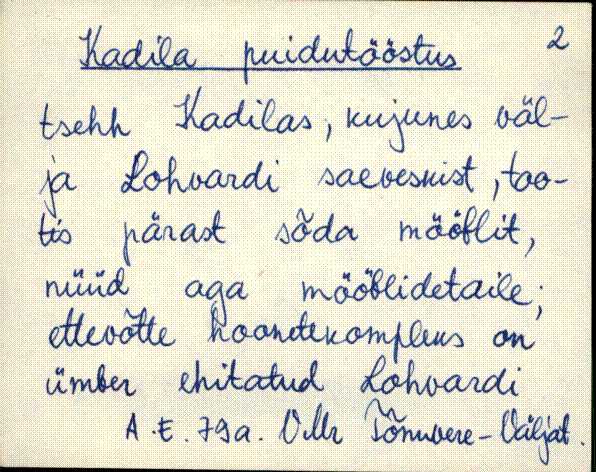 Kadila puidutööstus 2
tsehh Kadilas, kujunes väl-
ja Lohvardi saeveskist, too-
tis pärast sõda mööblit,
nüüd aga mööblidetaile;
ettevõtte hoonetekompleks on
ümber ehitatud Lohvardi
A.E. 79a. V.Mr Tõnuvere-Väljat.